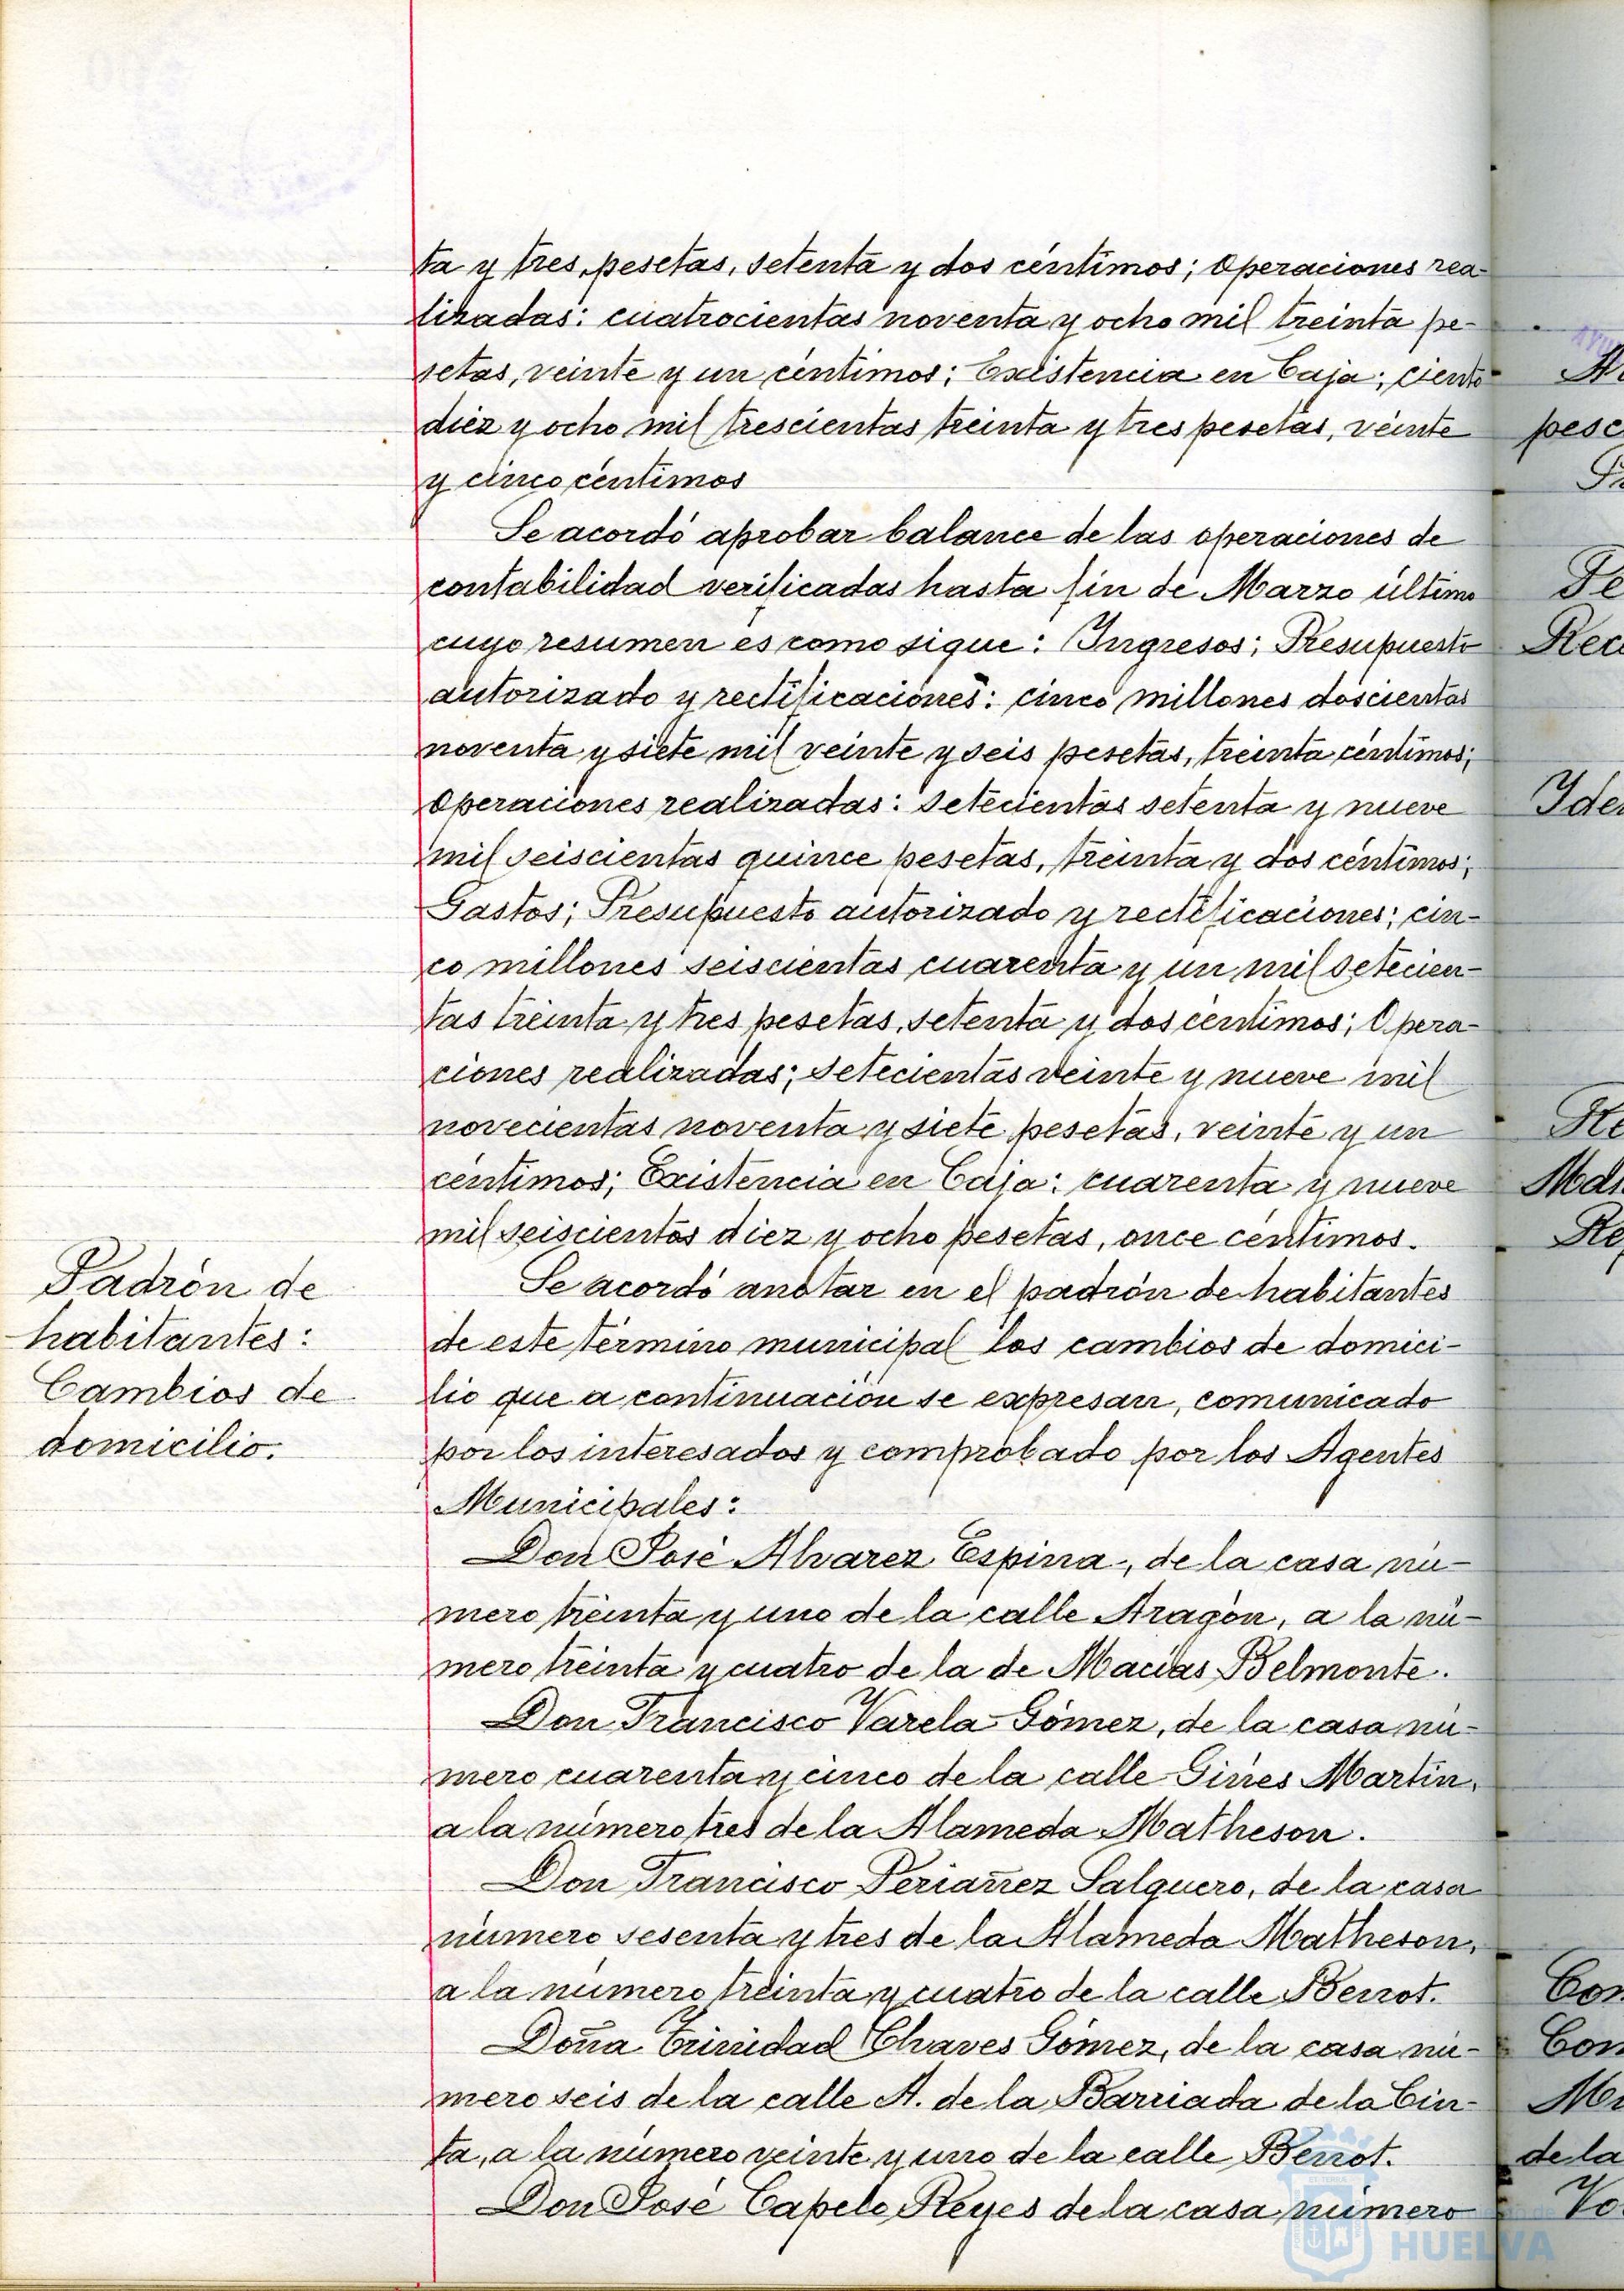 ta y tres pesetas, setenta y dos céntimos; Operaciones rea-
lizadas: cuatrocientas noventa y ocho mil treinta pe-
setas, veinte y un céntimos; Existencia en Caja; ciento
diez y ocho mil trescientas treinta y tres pesetas, veinte
y cinco céntimos
Se acordó aprobar balance de las operaciones de
contabilidad verificadas hasta fin de Marzo último
cuyo resumen es como sigue: Ingresos; Presupuesto
autorizado y rectificaciones: cinco millones doscientas
noventa y siete mil veinte y seis pesetas, treinta céntimos;
Operaciones realizadas: setecientas setenta y nueve
mil seiscientas quince pesetas, treinta y dos céntimos;
Gastos; Presupuesto autorizado y rectificaciones; cin-
co millones seiscientas cuarenta y un mil setecien-
tas treinta y tres pesetas, setenta y dos céntimos; Opera-
ciones realizadas; setecientas veinte y nueve mil
novecientas noventa y siete pesetas, veinte y un
céntimos; Existencia en Caja: cuarenta y nueve
mil seiscientos diez y ocho pesetas, once céntimos.
Padrón de
habitantes:
Cambios de
domicilio.
Se acordó anotar en el padrón de habitantes
de este término municipal los cambios de domici-
lio que a continuación se expresan, comunicado
por los interesados y comprobado por los Agentes
Municipales:
Don José Alvarez Espina, de la casa nú-
mero treinta y uno de la calle Aragón, a la nú-
mero treinta y cuatro de la de Macías Belmonte.
Don Francisco Varela Gómez, de la casa nú-
mero cuarenta y cinco de la calle Ginés Martín,
a la número tres de la Alameda Matheson.
Don Francisco Periañez Salguero, de la casa
número sesenta y tres de la Alameda Matheson,
a la número treinta y cuatro de la calle Berrot.
Doña Trinidad Chaves Gómez, de la casa nú-
mero seis de la calle A. de la Barriada de la Cin-
ta, a la número veinte y uno de la calle Berrot.
Don José Capelo Reyes de la casa número
HUELVA
pese
de la